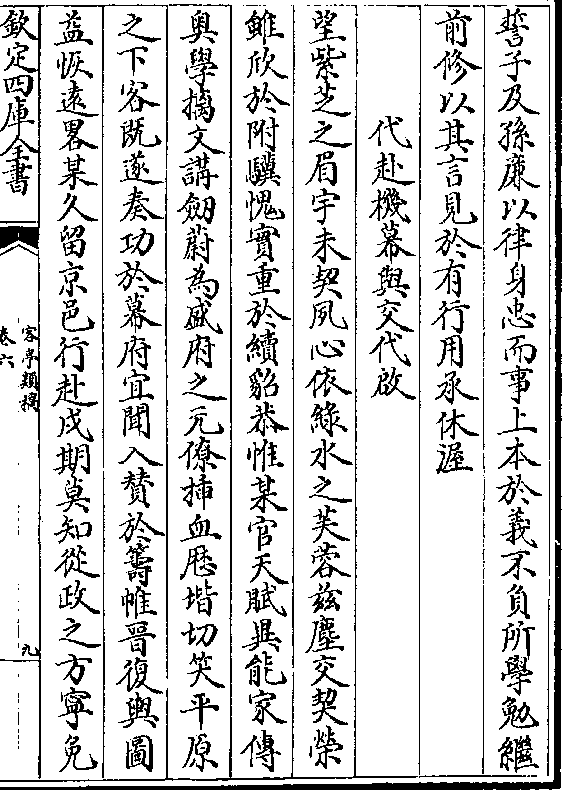 誓子及孫廉以律身忠而事上本於義不負所學勉繼
前修以其言見於有行用承休渥
代赴機幕與交代啟
望紫芝之眉宇未契夙心依綠水之芙蓉兹塵交契榮
雖欣於附驥愧實重於續貂恭惟某官天賦異能家傳
奥學摛文講劔蔚為盛府之元僚揷血歴堦切笑平原
之下客既遂奏功於幕府宜聞入賛於籌帷晉復輿圖
益恢遠畧某久留京邑行赴戍期莫知從政之方寧免
欽定四庫全書
客亭類稿
卷六
九